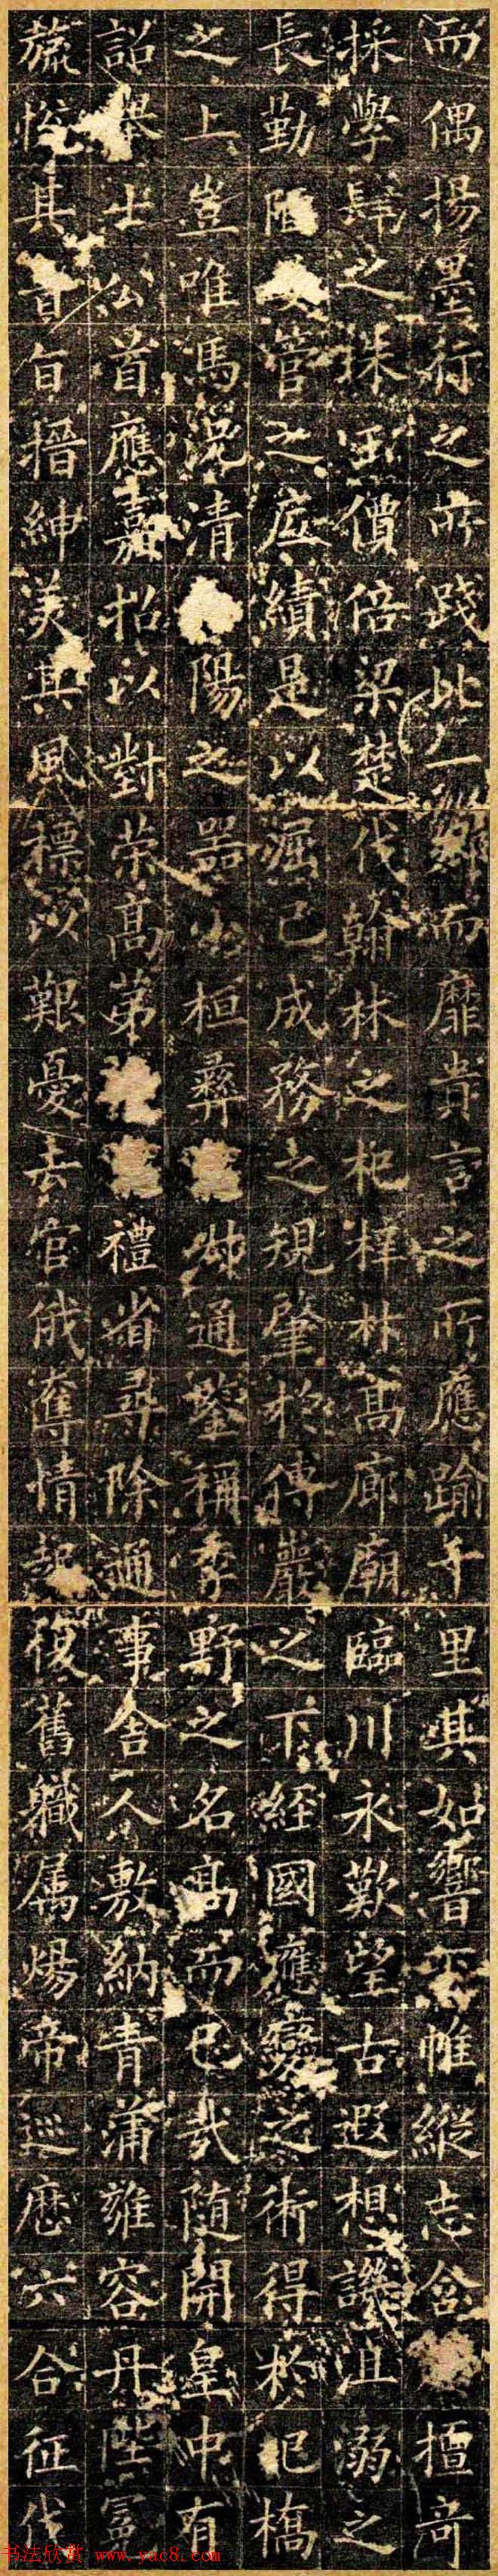 而偶揚墨行之所踐比一鄉而靡貴言之所應踰千里其如響帷縱志含擅奇
採學肆之珠玉價倍梁楚伐翰林之杞梓材高廊廟臨川永歎望古遐想譏沮溺之
長勤陋管之庶績是以己成務之規肇於傅巖之下經國應變之術得於圯橋
之上豈唯馮清陽之器桓彝通鑒稱季野之名高而已哉隨開皇中有
詔舉士公首應嘉招以對榮高第禮省尋除通事舍人敷納青蒲雍容丹陛富
疏悅其音旨搢紳美其風標以艱憂去官俄奪情起復舊職屬煬帝巡歷六合征伐
书法欣赏 www.yac8.com